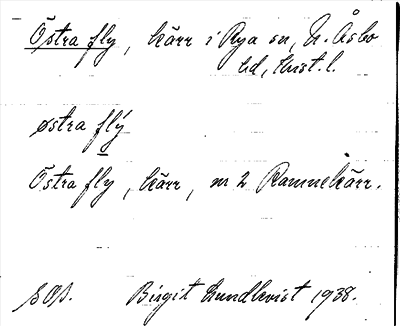 Östra fly, kärr i Rya sn, N. Åsbo
hd, Krist. l.
østra flý
Östra fly, kärr, m 2 Ramnekärr.
SOS. Birgit Lundkvist 1938.